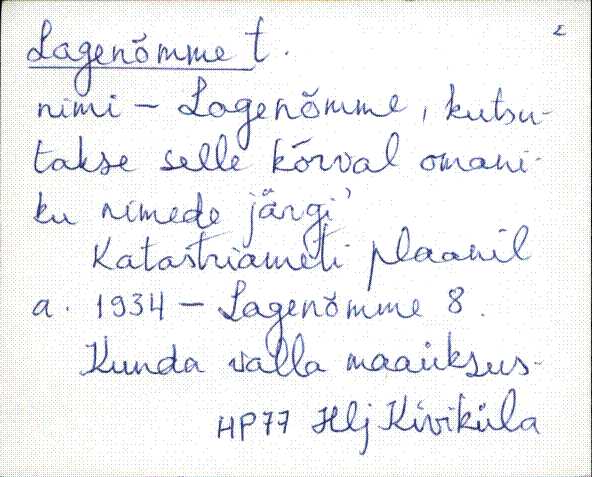 2
Lagenõmme t.
nimi - Lagenõmme, kutsu-
takse selle kõrval omani-
ku nimede järgi'
Katastriameti plaanil
a. 1934 - Lagenõmme 8.
Kunda valla maaüksus-
HP77 Hlj Kiviküla